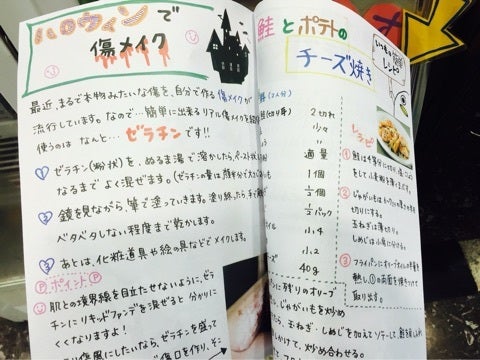 ハロウィンで
傷メイク
最近、まるで本物みたいな傷を、自分で作る傷メイクが
流行しています。なので…簡単に出来るリアル傷メイクを
使うのは なんと… ゼラチン です!!
① ゼラチン(粉状)を、ぬるま湯で溶かしたら、ペースト状
なるまで よく混ぜます。(ゼラチンの量は
② 鏡を見ながら、筆で塗っていきます。塗り終ったら、
ベタベタしない程度まで乾かします。
③ あとは、化粧道具や絵の具などでメイクします。
P ポイント P
肌との境界線を目立たせないように、ゼラ
チンにリキッドファンデを混ぜると 分かりに
くくなりますよ!
にしたいなら、ゼラチンを盛って
鮭とポテトの
チーズ焼き
簡単
レシピ
(2人分)
鮭(切り身) 2切れ
少々
適量
1個
1/2個
1/2パック
小.4
小.2
40g
レシピ
① 鮭は
をして
② じゃがいもは
切りにする。
玉ねぎは薄切り。
しめじは小房に分ける。
③ フライパンにオリーブオイルを
熱し、①の両面を焼きつけて
取り出す。
に残りのオリーブ
じゃがいもを炒め
玉ねぎ・しめじを加えてソテーして、
しかけて、炒め合わせる。